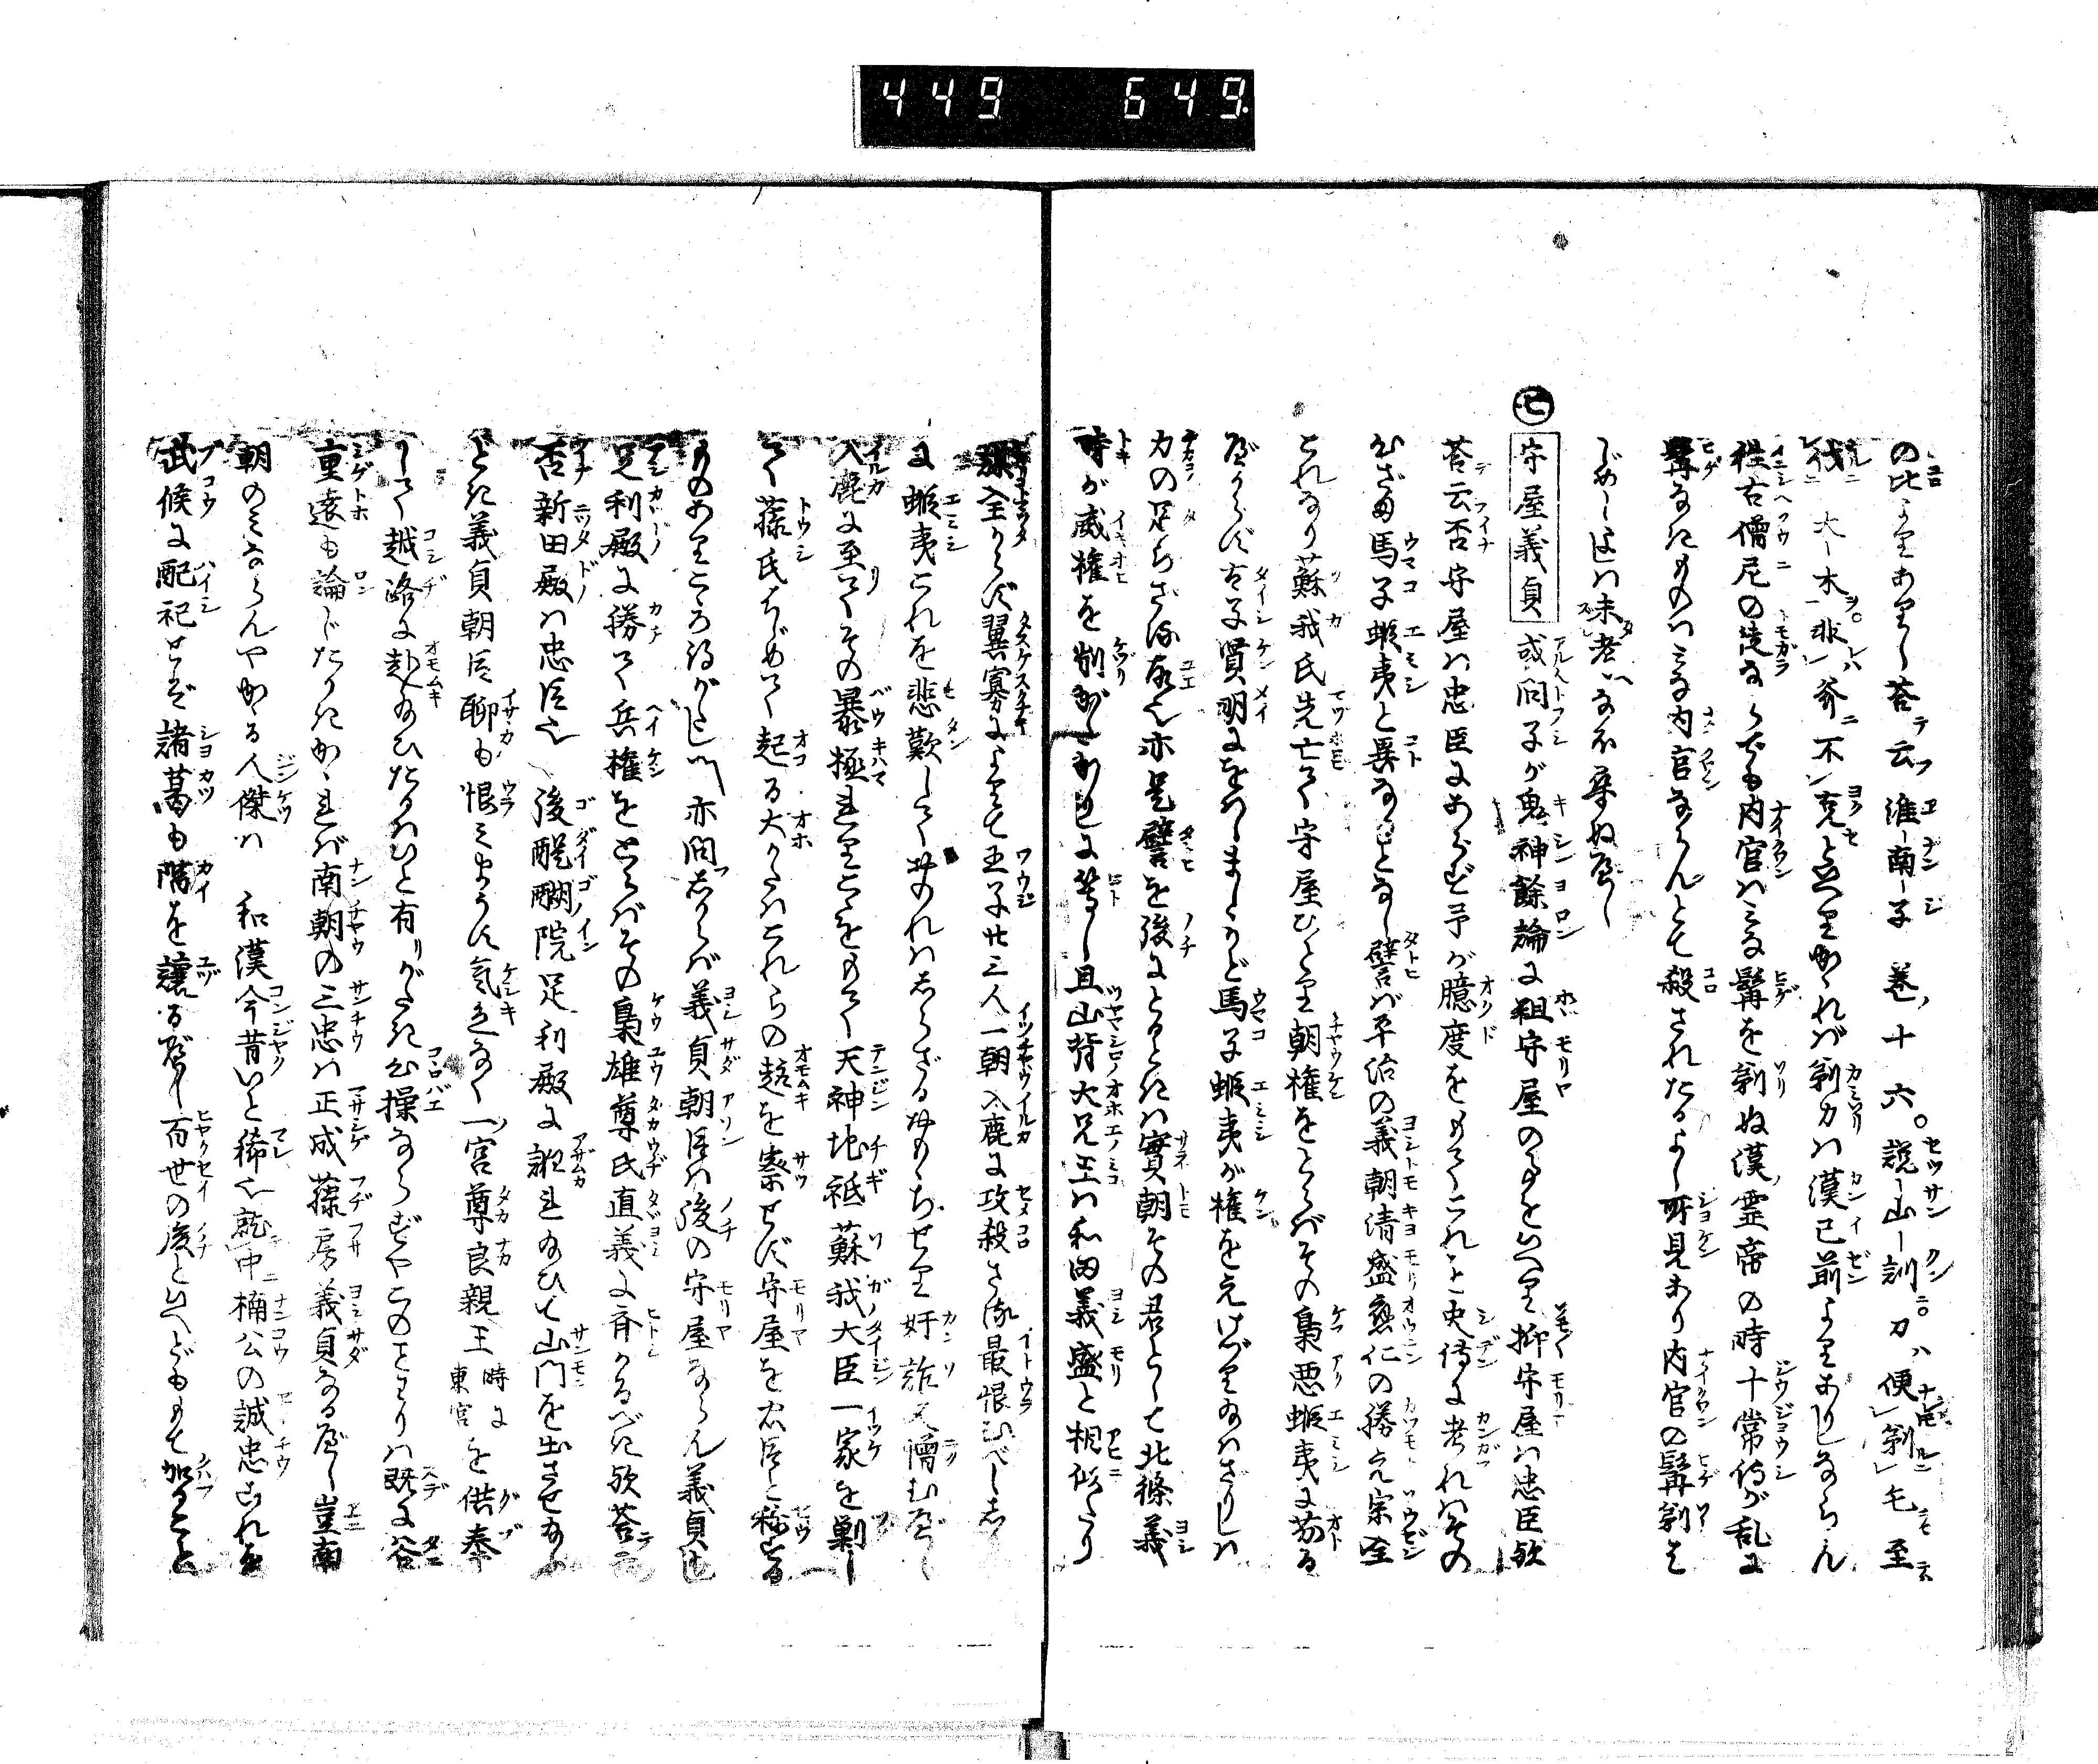 449 649.
の比よりあり〳〵荅云淮南子巻ノ十六。説山訓ニ。刀ハ便剃毛至
伐大木非斧不克と見えたりかゝれば剃刀は漢已前よりありしならん
往古僧尼の徒ならでも内官はみな髯を剃ぬ漢ノ霊帝の時十常侍が乱に
髯なきものはみな内官ならんとて殺されたるよし所見あり内官の髯剃は
じめし近は未考なほ尋ぬべし
㊆守屋義貞 或問子が鬼神餘論に粗守屋の事をいへり抑守屋は忠臣歟
荅云否守屋は忠臣にあらず予が臆度をもてこれを史傳に考れはその
ひざま馬子蝦夷と異なることなし譬ば平治の義朝清盛應仁の勝元宗全
これなり蘇我氏先亡て守屋ひとり朝権をとらばその梟悪蝦夷に劣る
べからず太子賢明にをはしましゝかど馬子蝦夷が権を得けづり給はざりしは
力の足らざる故也亦是譬を後にとるときは實朝その君として北條義
時が威権を削がざりしに等し且山背大兄王は和田義盛と相似たり
謀全からず翼寡によりて王子廿三人一朝入鹿に攻殺さる最恨むべししか
るに蝦夷これを悲歎して せり奸詐又憎むべし
入鹿に至てその暴極れりこゝをもて天神地祗蘇我大臣一家を剿し
て藤氏はじめて起る大かたはこれらの趣を察せず守屋を忠臣と称する
ものあり 亦問しからば義貞朝臣は後の守屋ならん義貞
足利殿に勝て兵権をとらばその梟雄尊氏直義に斉かるべき歟荅云
否新田殿は忠臣也後醍醐院足利殿に誑れ給ひて山門を出させ給ふ
とき義貞朝臣聊も恨みまうす気色なく一ノ宮尊良親王時に東宮を供奉
して越路に赴給ひたるはいと有がたき心操ならずやこのことわりは既に谷
重遠も論じたりきかゝれば南朝の三忠は正成藤房義貞なるべし豈南
朝のみならんやかゝる人傑は和漢今昔いと稀也就中楠公の誠忠これを
武侯に配祀せば諸葛も階を譲るべし百世の後といへどももて加ること